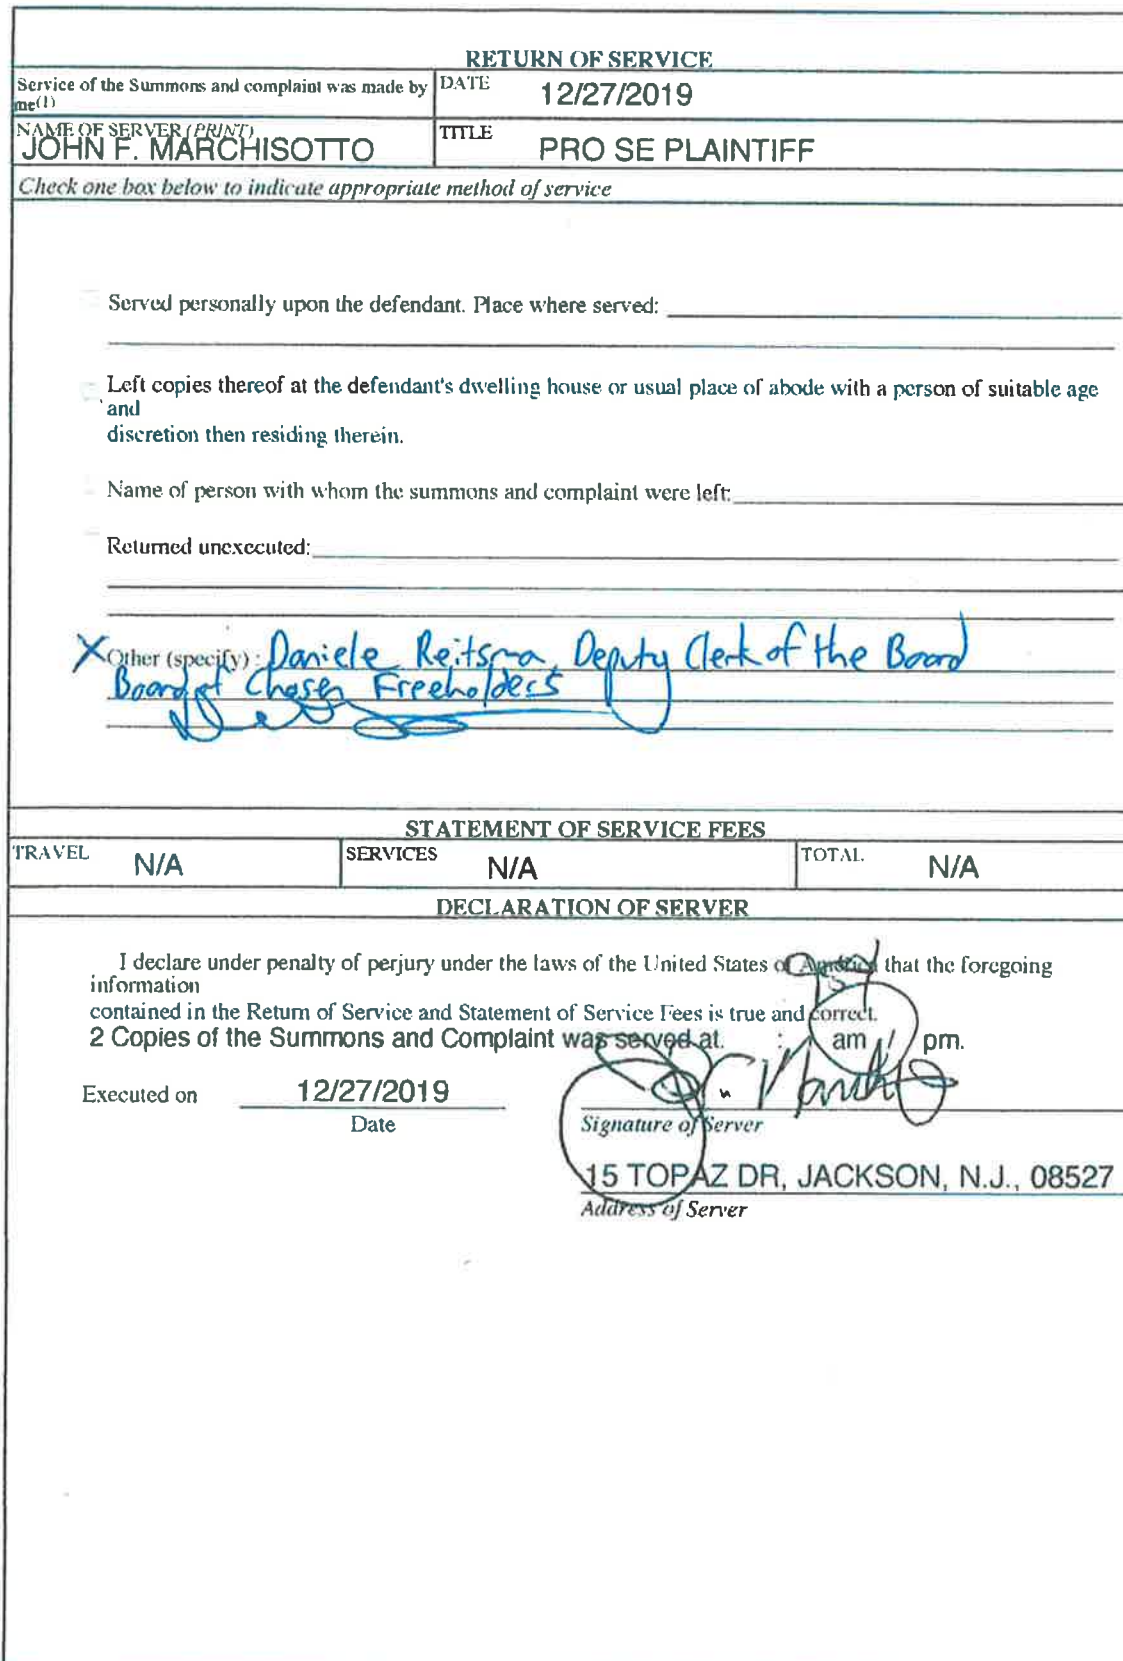 RETURN OF SERVICE
Service of the Summons and complaint was made by me(1)
DATE
12/27/2019
NAME OF SERVER (PRINT)
JOHN F. MARCHISOTTO
TITLE
PRO SE PLAINTIFF
Check one box below to indicate appropriate method of service
Served personally upon the defendant. Place where served:
Left copies thereof at the defendant's dwelling house or usual place of abode with a person of suitable age
and
discretion then residing therein.
Name of person with whom the summons and complaint were left:
Returned unexecuted:
X Other (specify) : Daniele Reitsma, Deputy Clerk of the Board
Board of Chosen Freeholders
STATEMENT OF SERVICE FEES
TRAVEL N/A
SERVICES N/A
TOTAL N/A
DECLARATION OF SERVER
I declare under penalty of perjury under the laws of the United States of America that the foregoing
information
contained in the Return of Service and Statement of Service Fees is true and correct.
2 Copies of the Summons and Complaint was served at. : am / pm.
Executed on 12/27/2019
Date
Signature of Server
15 TOPAZ DR, JACKSON, N.J., 08527
Address of Server